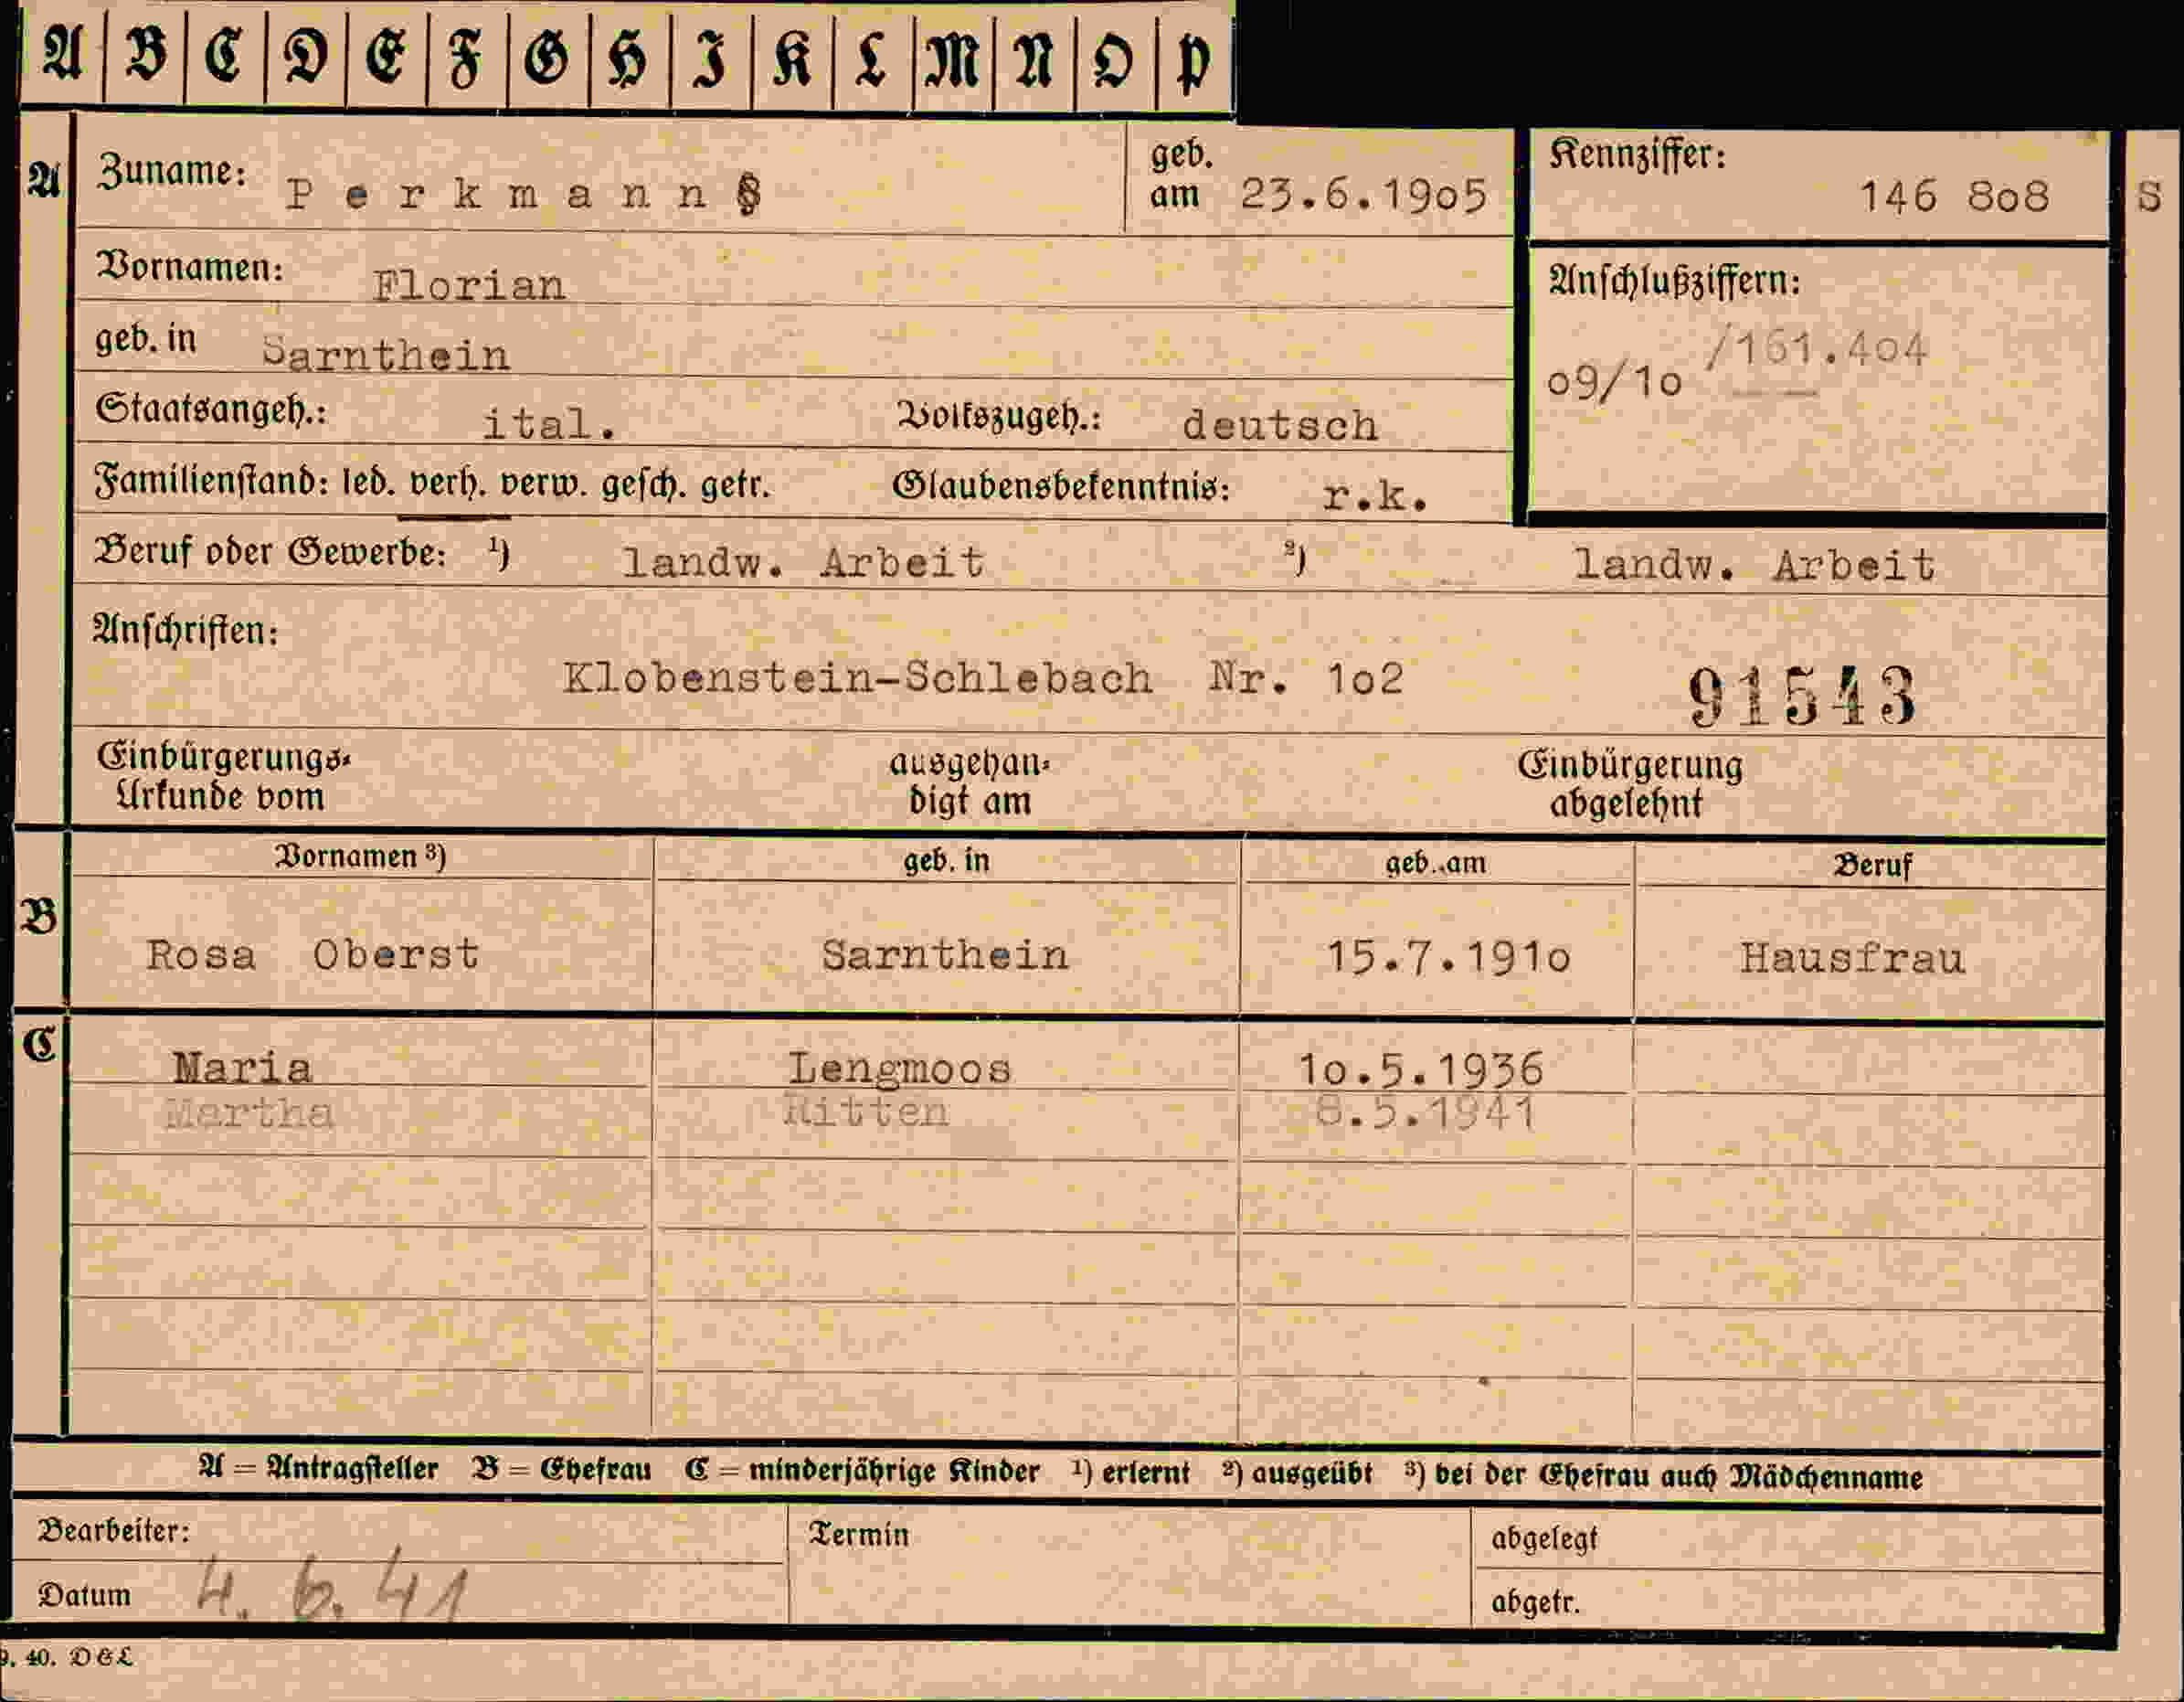 A B C D E F G H I K L M N O P
A Zuname: Perkmann§ geb. am 23.6.19o5 Kennziffer: 146 8o8 S
Vornamen: Florian Anschlußziffern:
geb. in Sarnthein o9/1o /161.4o4
Staatsangeh.: ital. Volkszugeh.: deutsch
Familienstand: led. verh. verw. gesch. getr. Glaubensbekenntnis: r.k.
Beruf oder Gewerbe: ¹) landw. Arbeit ²) landw. Arbeit
Anschriften:
Klobenstein-Schlebach Nr. 1o2 91543
Einbürgerungs- ausgehan- Einbürgerung
Urkunde vom digt am abgelehnt
Vornamen ³) geb. in geb. am Beruf
B Rosa Oberst Sarnthein 15.7.191o Hausfrau
C Maria Lengmoos 1o.5.1936
Martha Ritten 8.5.1941
A = Antragsteller B = Ehefrau C = minderjährige Kinder ¹) erlernt ²) ausgeübt ³) bei der Ehefrau auch Mädchenname
Bearbeiter: Termin abgelegt
Datum 4. 6. 41 abgetr.
9. 40. D&L